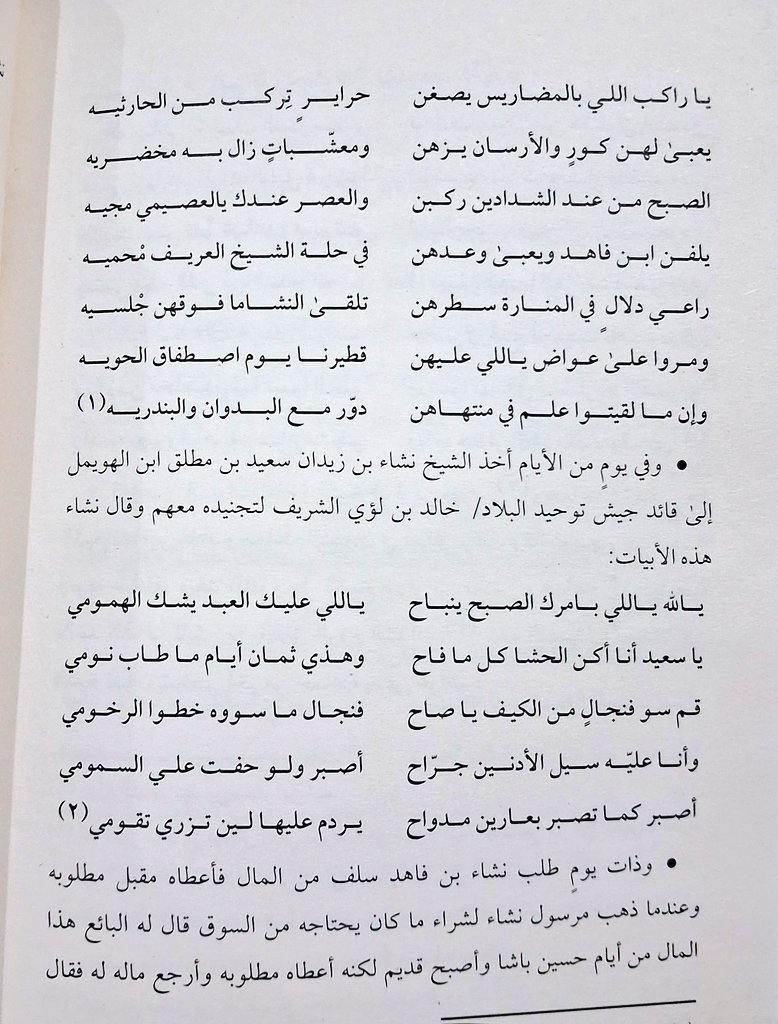 يا راكب اللي بالمضاريس يصغن حرايرٍ تِركب من الحارثيه
يعبىٰ لهن كورٍ والأرسان يزهن ومعشّباتٍ زال به مخضريه
الصبح من عند الشدادين ركبن والعصر عندك يالعصيمي مجيه
يلفن ابن فاهد ويعبىٰ وعدهن في حلة الشيخ العريف مْحميه
راعي دلالٍ في المنارة سطرهن تلقىٰ النشاما فوقهن جْلسيه
ومروا علىٰ عواض ياللي عليهن قطيرنا يوم اصطفاق الحويه
وإن ما لقيتوا علم في منتهاهن دوّر مع البدوان والبندريه(١)
• وفي يومٍ من الأيام أخذ الشيخ نشاء بن زيدان سعيد بن مطلق ابن الهويمل
إلىٰ قائد جيش توحيد البلاد/ خالد بن لؤي الشريف لتجنيده معهم وقال نشاء
هذه الأبيات:
يالله ياللي بامرك الصبح ينباح ياللي عليك العبد يشك الهمومي
يا سعيد أنا أكن الحشا كل ما فاح وهذي ثمان أيام ما طاب نومي
قم سو فنجالٍ من الكيف يا صاح فنجال ما سووه خطوا الرخومي
وأنا عليّه سيل الأدنين جرّاح أصبر ولو حفت علي السمومي
أصبر كما تصبر بعارين مدواح يردم عليها لين تزري تقومي(٢)
• وذات يومٍ طلب نشاء بن فاهد سلف من المال فأعطاه مقبل مطلوبه
وعندما ذهب مرسول نشاء لشراء ما كان يحتاجه من السوق قال له البائع هذا
المال من أيام حسين باشا وأصبح قديم لكنه أعطاه مطلوبه وأرجع ماله له فقال